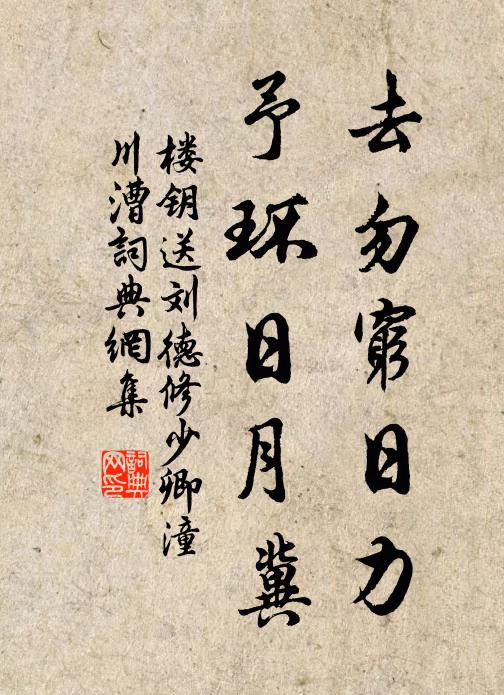 去勿窮日力
予环日月冀
楼钥送刘德修少卿潼
川漕詞典網集
詞典网印